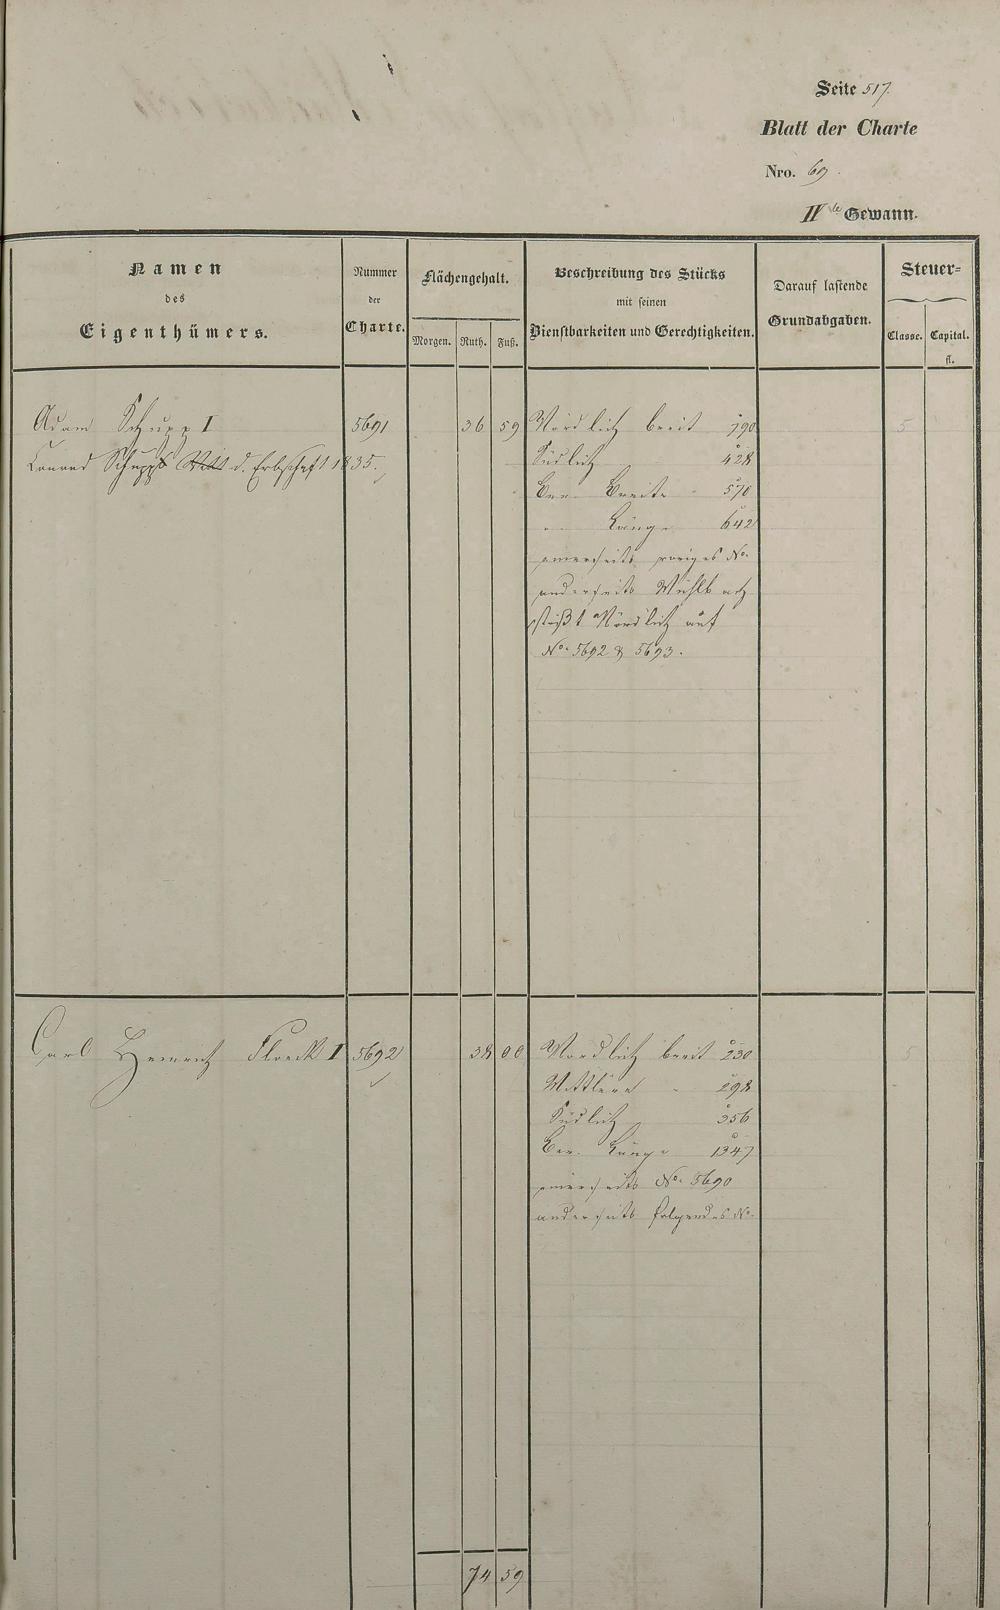 Seite 517.
Blatt der Charte
Nro. 69.
IVte Gewann.
Namen des Eigenthümers.
Nummer der Charte.
Flächengehalt.
Morgen. Ruth. Fuß.
Beschreibung des Stücks mit seinen Dienstbarkeiten und Gerechtigkeiten.
Darauf lastende Grundabgaben.
Steuer-
Classe. Capital. fl.
Adam Schupp I 5691 36 59 Nördlich breit 790 5
Conrad Schupps Wtt d. Erbschaft 1835.
Südlich 428
Ber. Breite 570
" Länge 642
einerseits voriges No.
anderseits Mühlbach
stößt Nördlich auf
No. 5692 & 5693.
Carl Heinrich Floeck I 5692 38 00 Nördlich breit 230 5
Mittlere " 298
Südlich 356
Ber. Länge 1347
einerseits No. 5690
anderseits folgendes No.
74 59